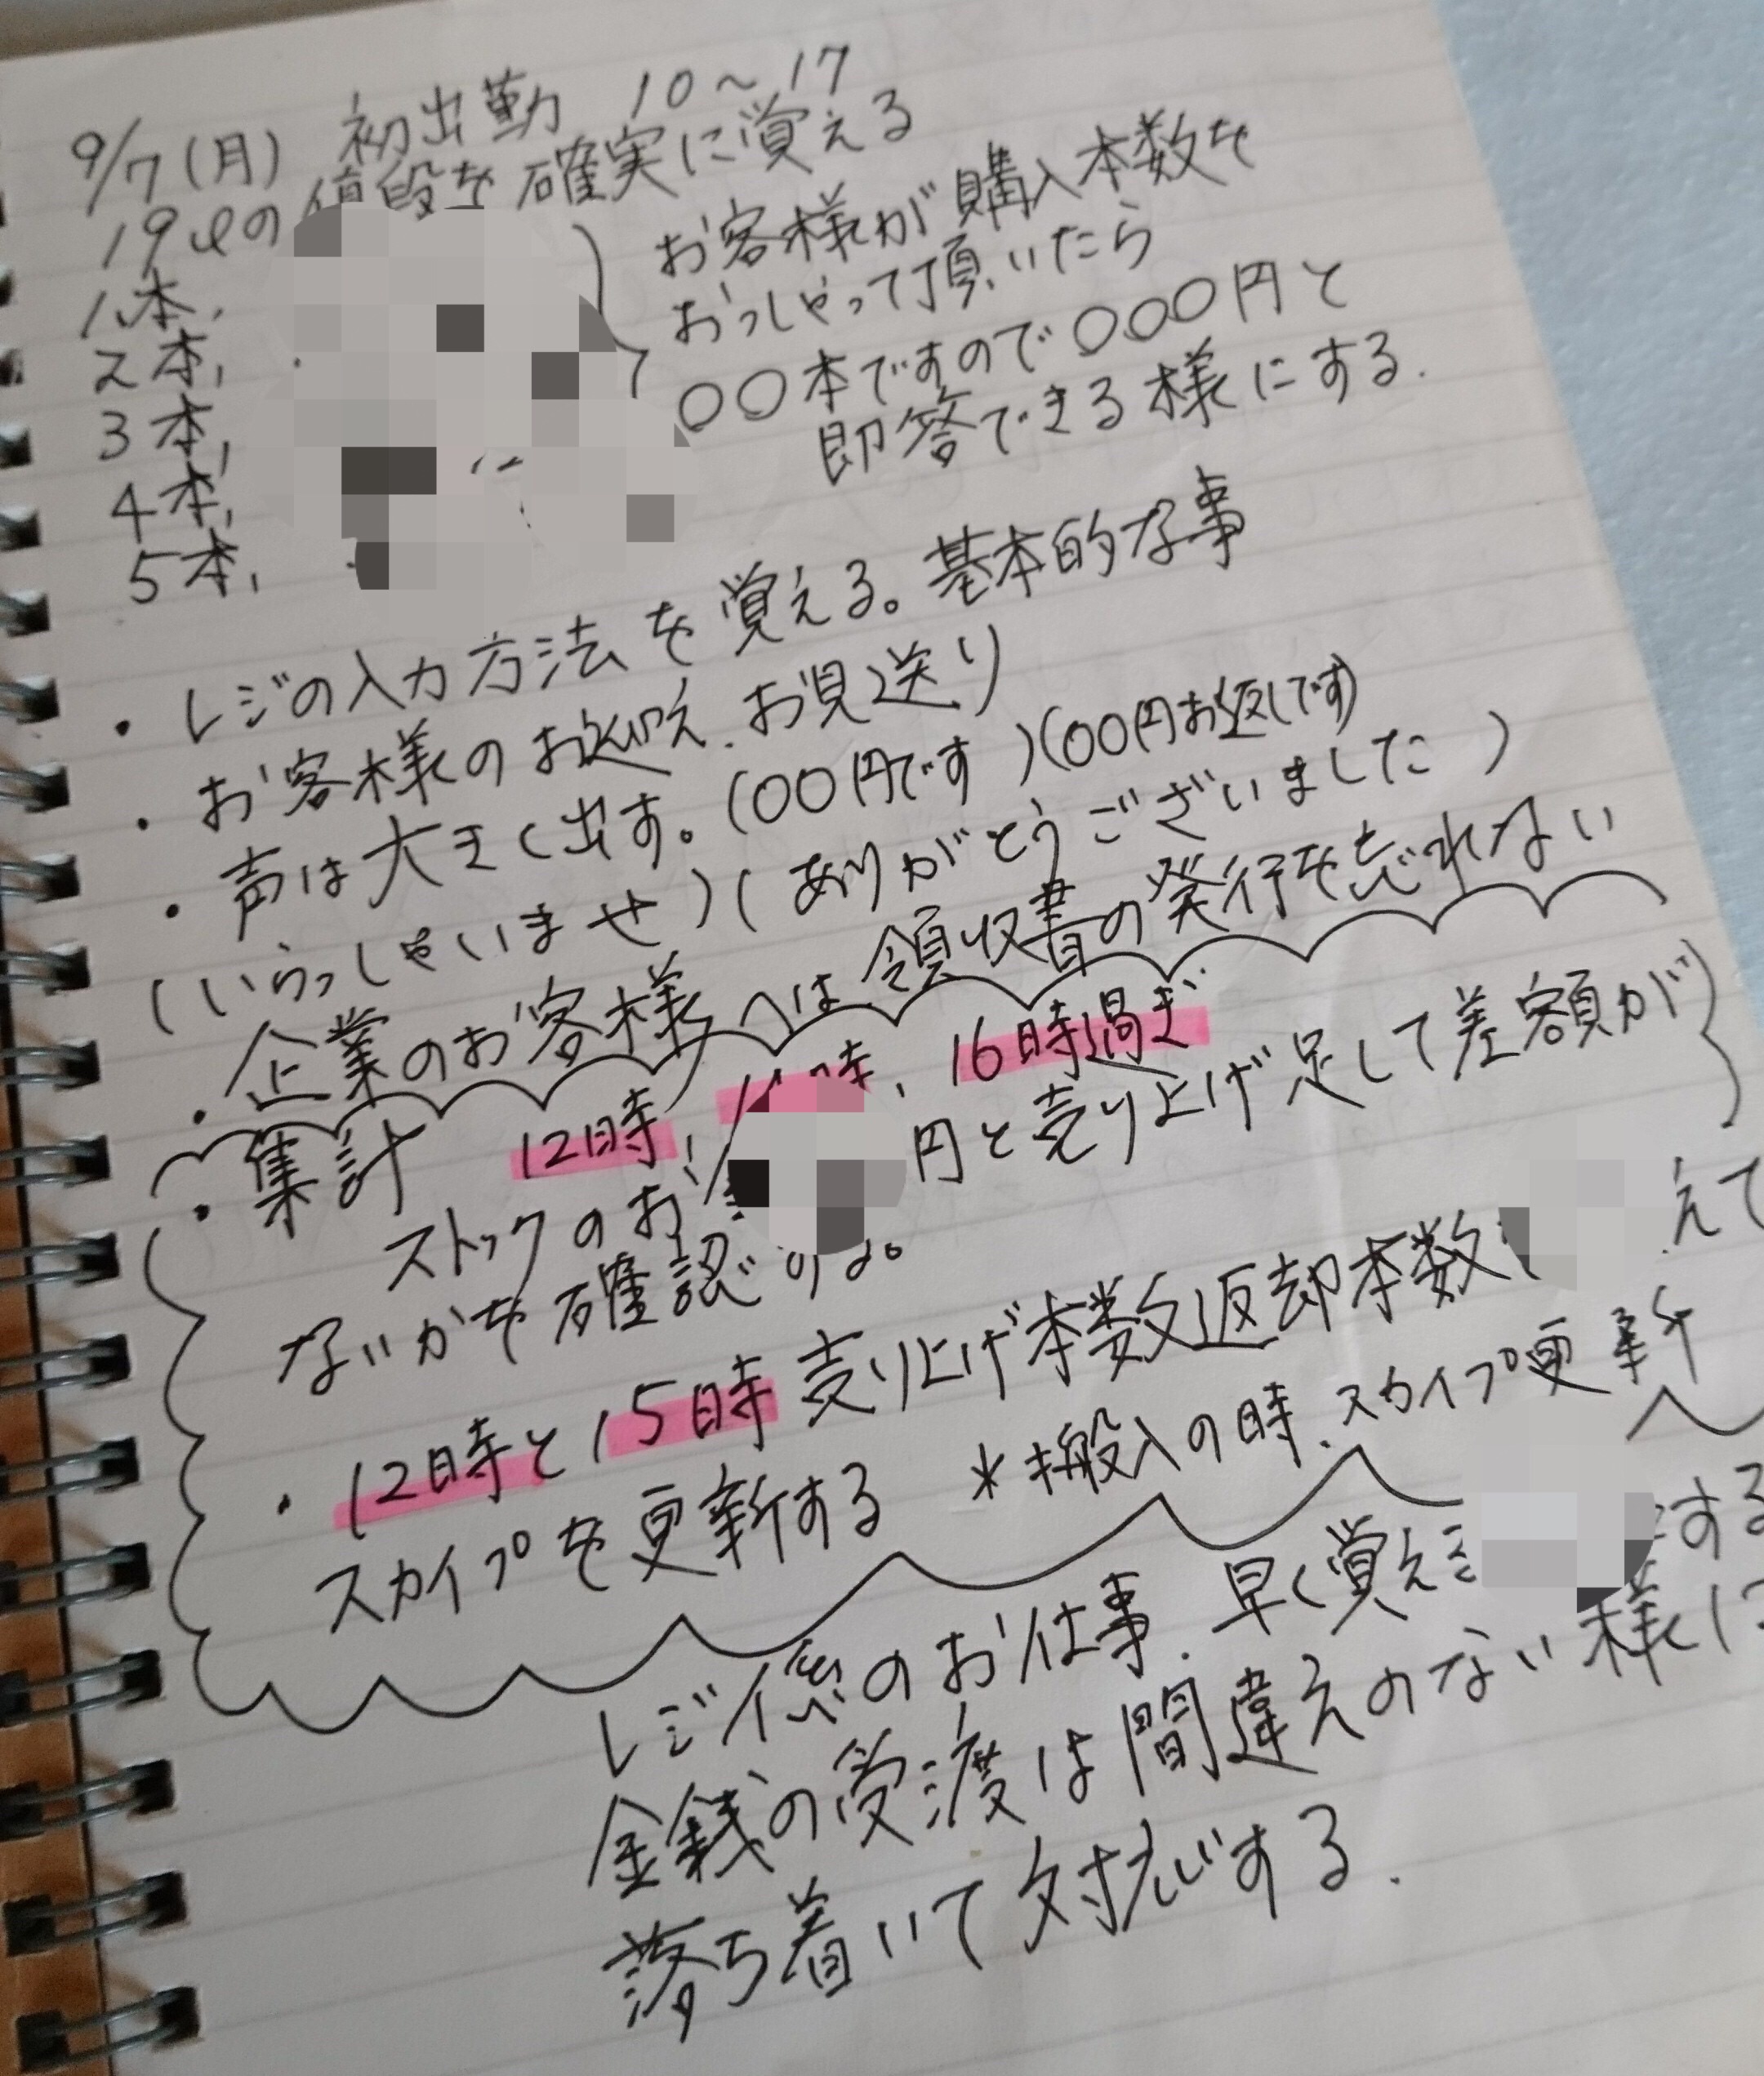 9/7(月) 初出勤 10～17
19ℓの値段を確実に覚える
1本,
2本,
3本,
4本,
5本,
お客様が購入本数を
おっしゃって頂いたら
〇〇本ですので〇〇〇円と
即答できる様にする.
・レジの入力方法を覚える。基本的な事
・お客様のお迎え.お見送り
・声は大きく出す。(〇〇円です)(〇〇円お返しです)
(いらっしゃいませ)(ありがとうございました)
・企業のお客様へは領収書の発行を忘れない
・集計 12時, 時、16時過ぎ
ストックのお 円と売り上げ足して差額が
ないかを確認する。
・12時と15時売り上げ本数返却本数 えて
スカイプを更新する *搬入の時、スカイプ更新
レジ係のお仕事.早く覚え する
金銭の受渡は間違えのない様に
落ち着いて対応する.